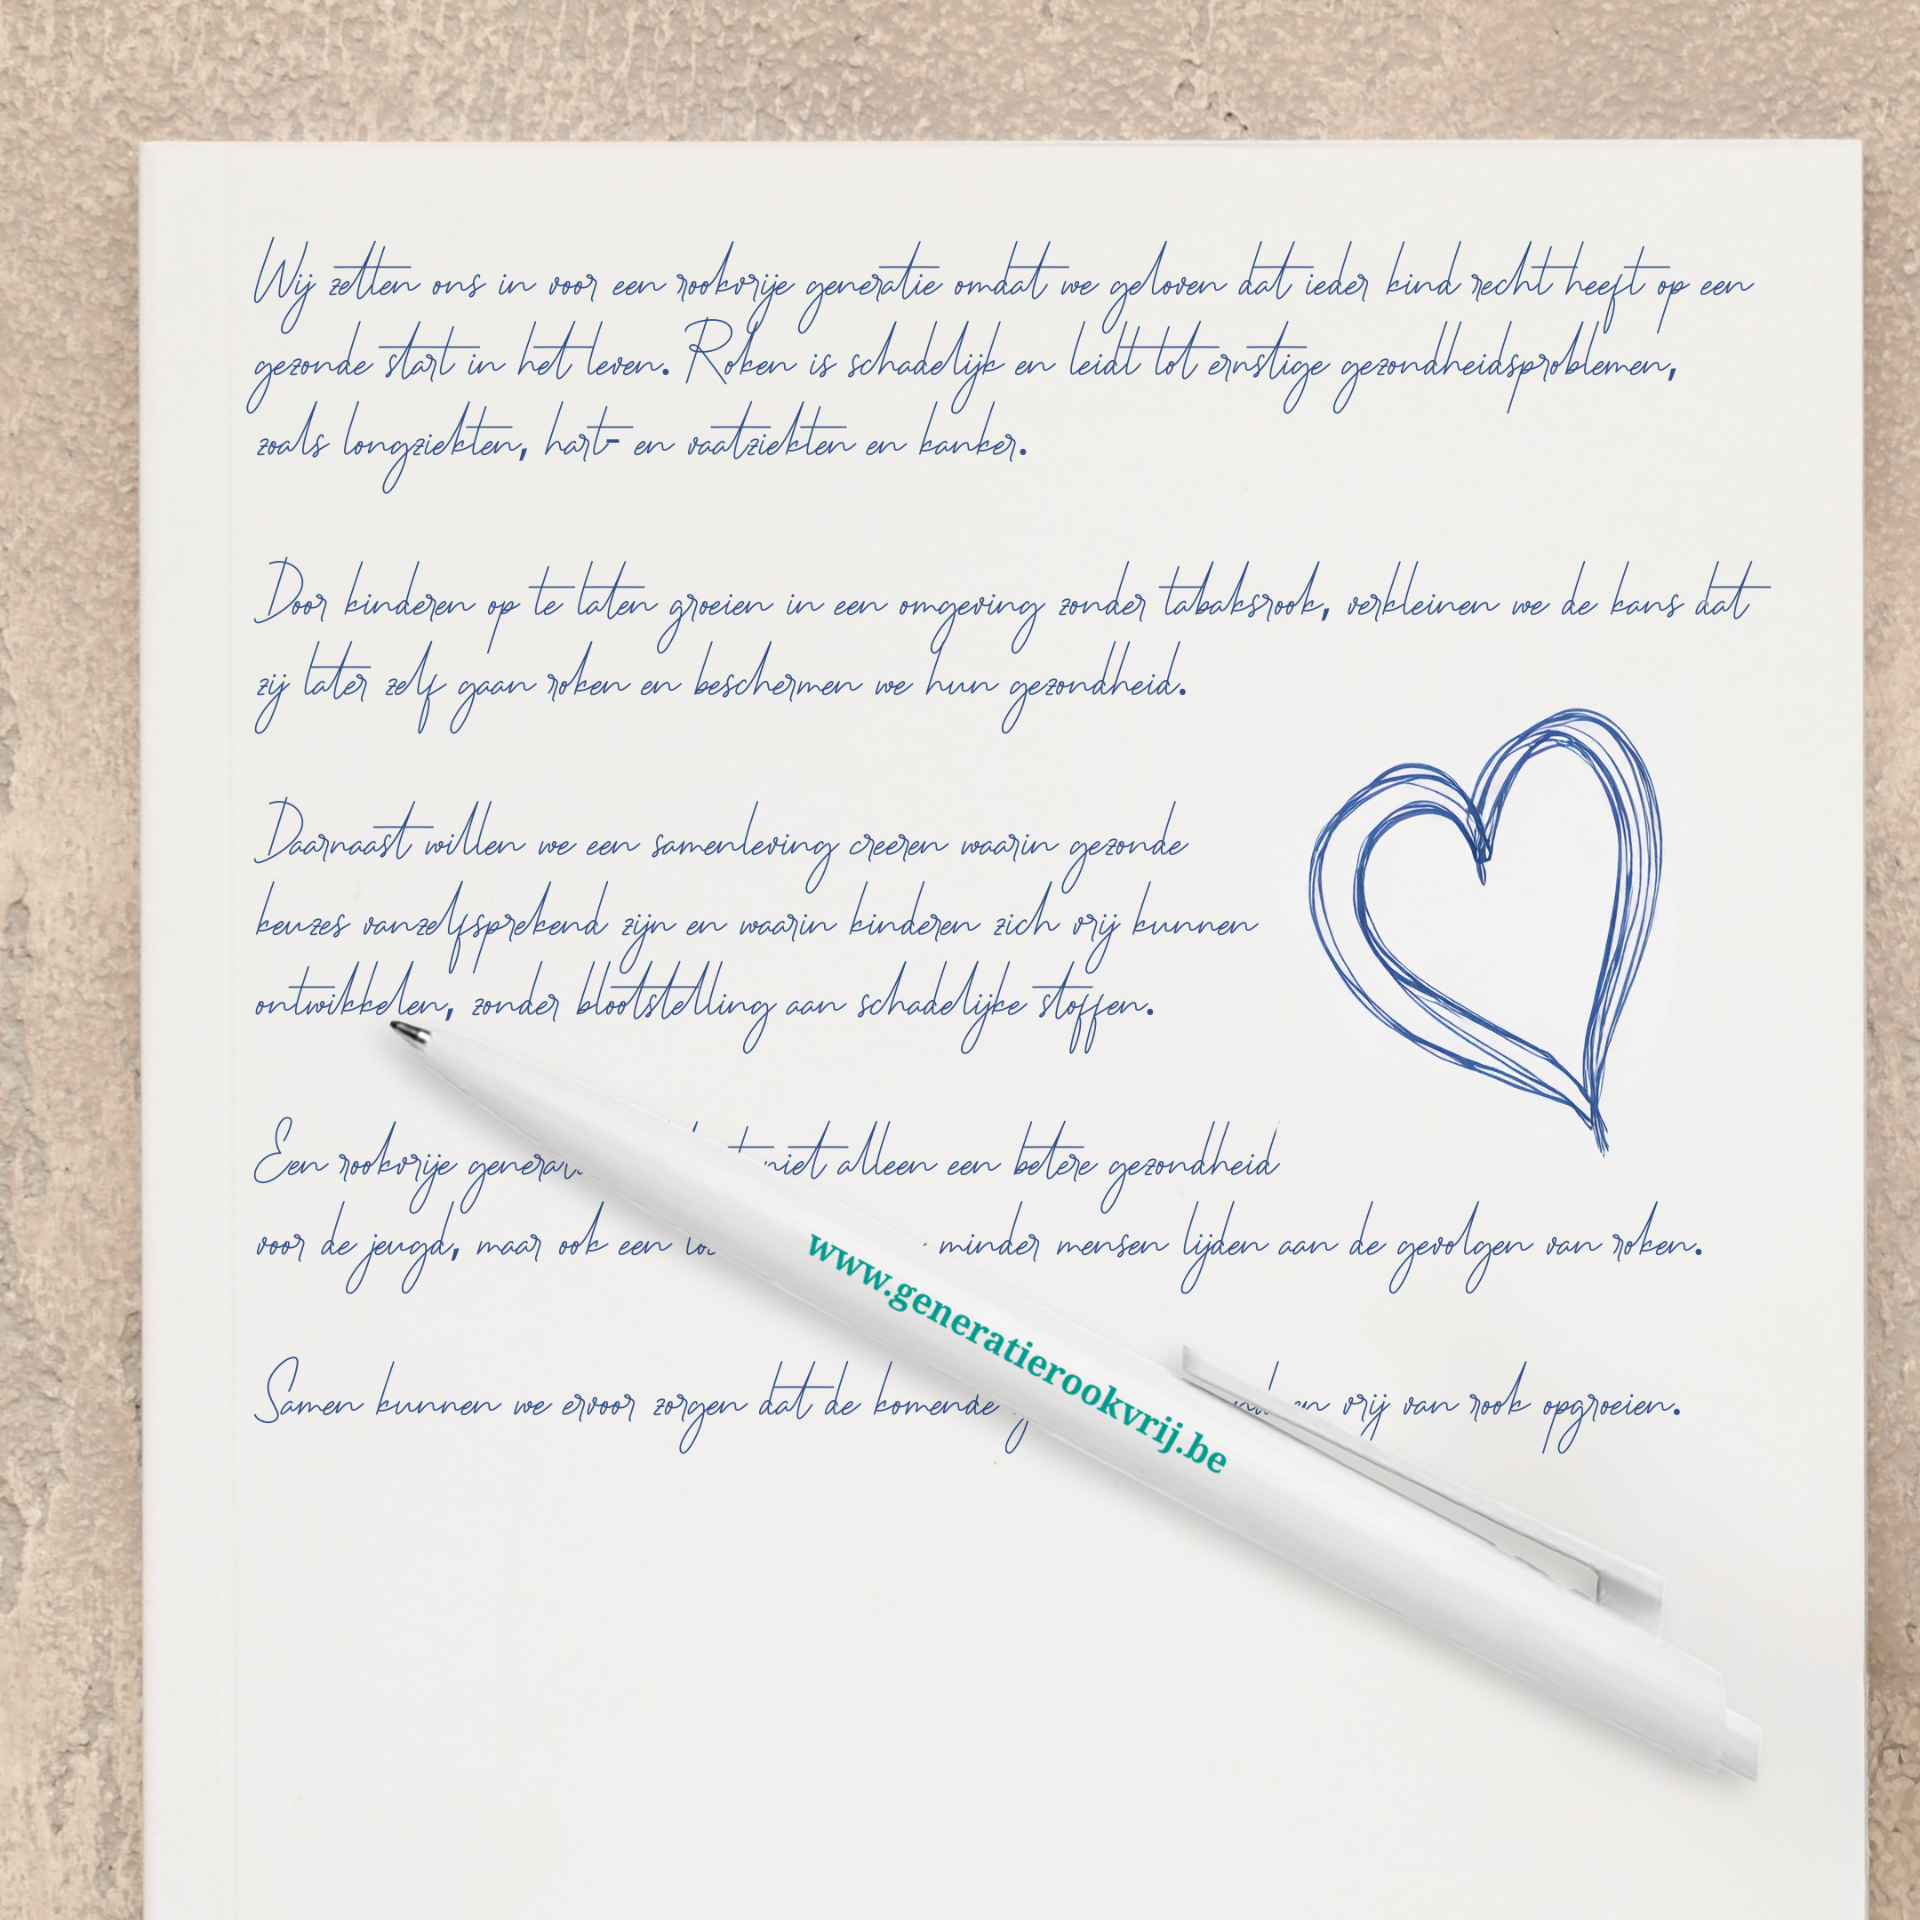 Wij zetten ons in voor een rookvrije generatie omdat we geloven dat ieder kind recht heeft op een
gezonde start in het leven. Roken is schadelijk en leidt tot ernstige gezondheidsproblemen,
zoals longziekten, hart- en vaatziekten en kanker.
Door kinderen op te laten groeien in een omgeving zonder tabaksrook, verkleinen we de kans dat
zij later zelf gaan roken en beschermen we hun gezondheid.
Daarnaast willen we een samenleving creeren waarin gezonde
keuzes vanzelfsprekend zijn en waarin kinderen zich vrij kunnen
ontwikkelen, zonder blootstelling aan schadelijke stoffen.
Een rookvrije niet alleen een betere gezondheid
voor de jeugd, maar ook een minder mensen lijden aan de gevolgen van roken.
Samen kunnen we ervoor zorgen dat de komende vrij van rook opgroeien.
www.generatierookvrij.be